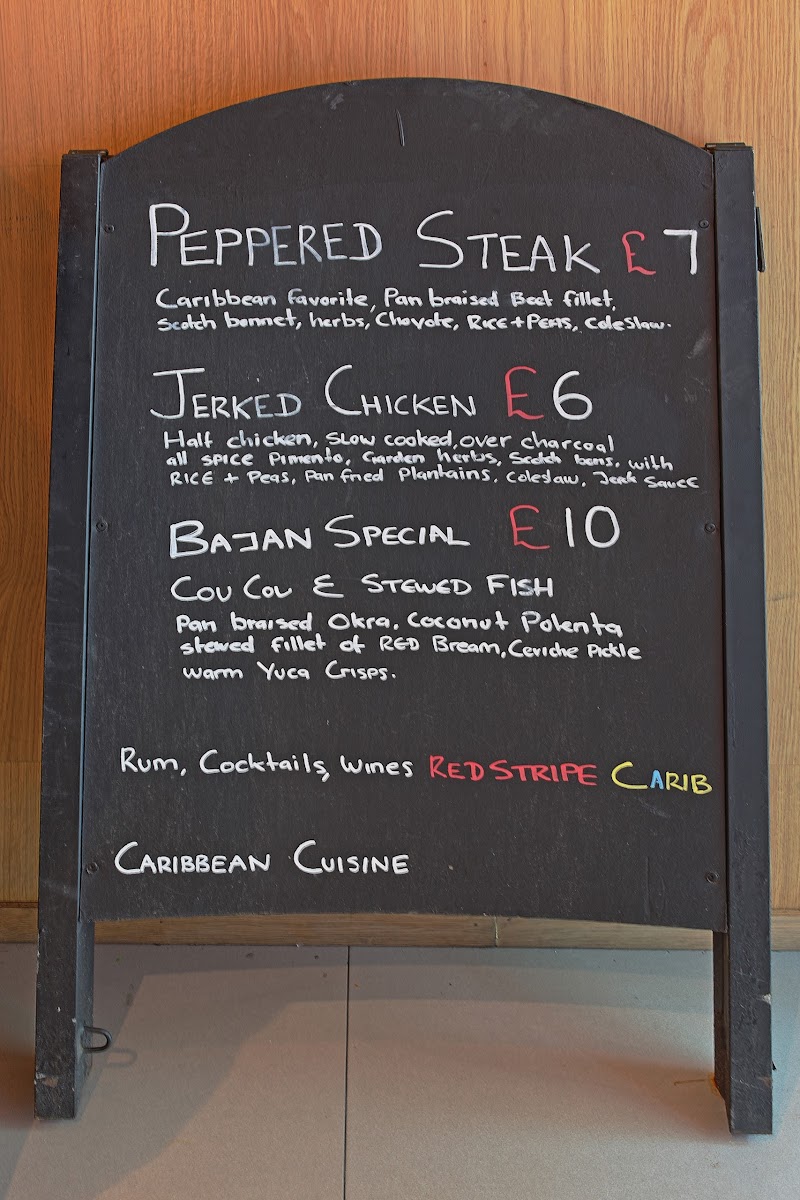 PEPPERED STEAK £7
Caribbean favorite, Pan braised Beef fillet,
Scotch bonnet, herbs, Choyote, RICE + PEAS, coleslaw.
JERKED CHICKEN £6
Half chicken, slow cooked, over charcoal
all SPICE Pimento, Garden herbs, Scotch bons, with
RICE + Peas, Pan fried Plantains, Coleslaw, Jerk Sauce
BAJAN SPECIAL £10
COU COU & STEWED FISH
Pan braised Okra, Coconut Polenta
stewed fillet of RED Bream, Ceviche Pickle
warm Yuca Crisps.
Rum, Cocktails, Wines RED STRIPE CARIB
CARIBBEAN CUISINE